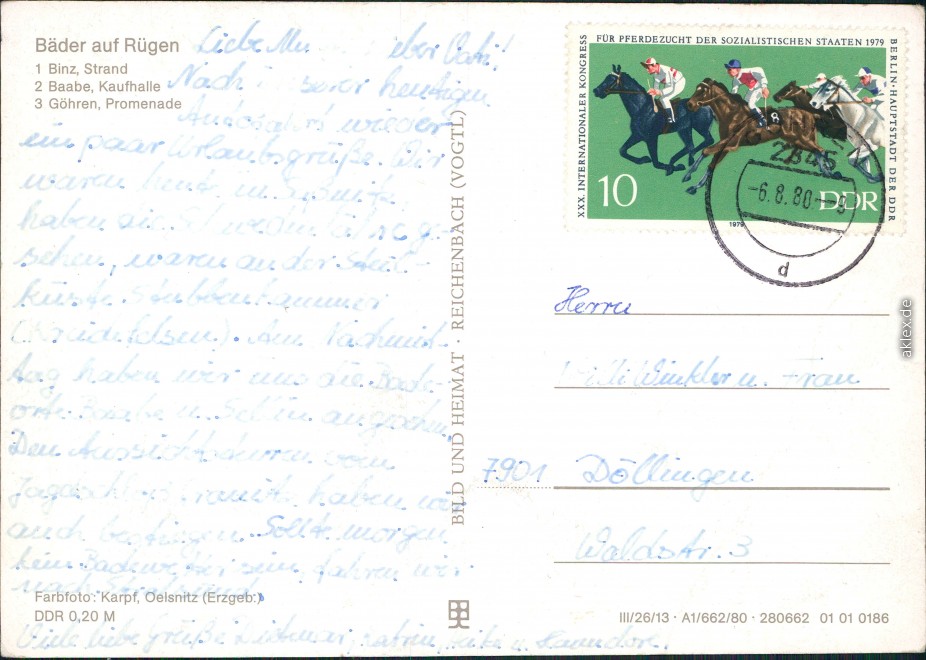 Bäder auf Rügen
1 Binz, Strand
2 Baabe, Kaufhalle
3 Göhren, Promenade
Liebe Vati!
Nach heutigen
wieder
ein paar Urlaubsgrüße. Wir
waren heute in
haben
sehen, waren an der Steil-
küste Stubbenkammer
(Kreidefelsen). Am Nachmit-
tag haben wir uns die Bade-
orte Baabe u. Sellin angesehen.
Den Aussichtsturm vom
Jagdschloß Granitz haben wir
auch bestiegen. Sollte morgen
kein Badewetter sein, fahren wir
nach
Farbfoto: Karpf, Oelsnitz (Erzgeb.)
DDR 0,20 M
Viele liebe Grüße Dietmar, u.
BILD UND HEIMAT · REICHENBACH (VOGTL)
XXX. INTERNATIONALER KONGRESS
FÜR PFERDEZUCHT DER SOZIALISTISCHEN STAATEN 1979
BERLIN · HAUPTSTADT DER DDR
8
10
DDR
1979
2345
-6.8.80-9
d
Herrn
Winkler u. Frau
7901 Döllingen
Waldstr. 3
III/26/13 · A1/662/80 · 280662 01 01 0186
aklex.de